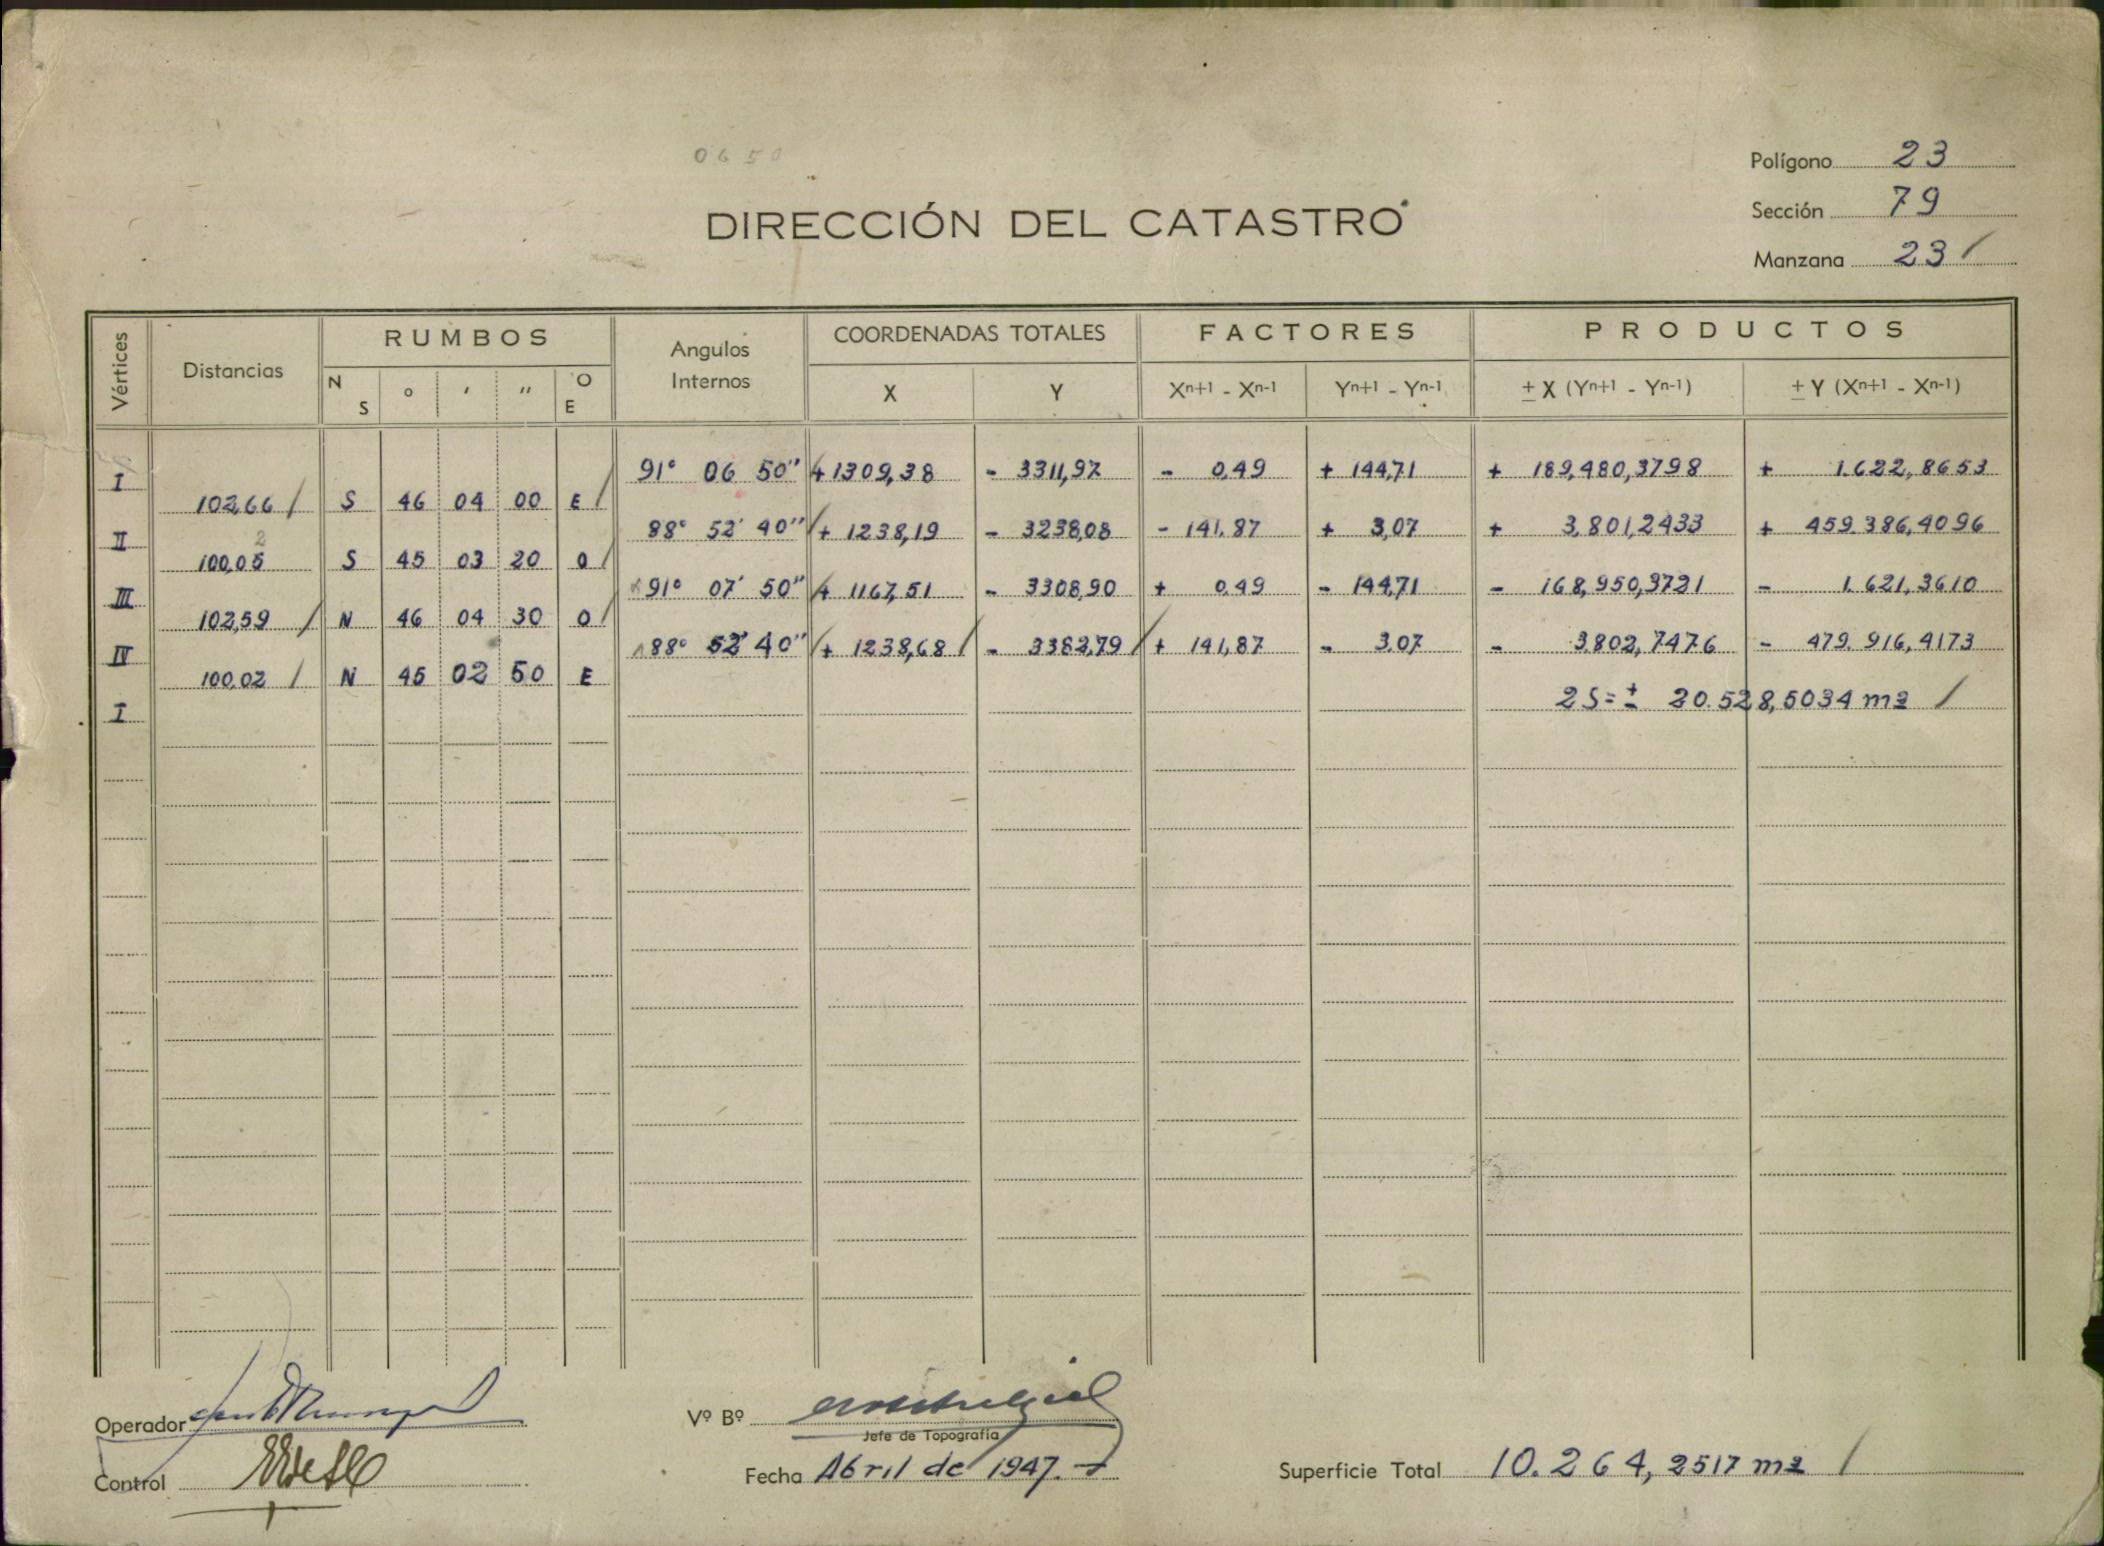 0650
Polígono 23
DIRECCIÓN DEL CATASTRO
Sección 79
Manzana 23 /
Vértices Distancias RUMBOS Angulos Internos COORDENADAS TOTALES FACTORES PRODUCTOS
N S ° ' '' O E X Y Xn+1 - Xn-1 Yn+1 - Yn-1 ± X (Yn+1 - Yn-1) ± Y (Xn+1 - Xn-1)
I 91° 06 50'' + 1309,38 - 3311,97 - 0,49 + 144,71 + 189,480,3798 + 1.622,8653
102,66 / S 46 04 00 E /
II 88° 52' 40'' / + 1238,19 - 3238,08 - 141,87 + 3,07 + 3,801,2433 + 459.386,4096
100,05 2 S 45 03 20 O /
III 91° 07' 50'' / + 1167,51 - 3308,90 + 0,49 - 144,71 - 168,950,3721 - 1.621,3610
102,59 / N 46 04 30 O /
IV 88° 52' 40'' / + 1238,68 / - 3382,79 / + 141,87 - 3,07 - 3.802,7476 - 479.916,4173
100,02 / N 45 02 50 E
I 2S=± 20.528,5034 m2 /
Operador Vº Bº
Jefe de Topografía
Control Fecha Abril de 1947.- Superficie Total 10.264,2517 m2 /